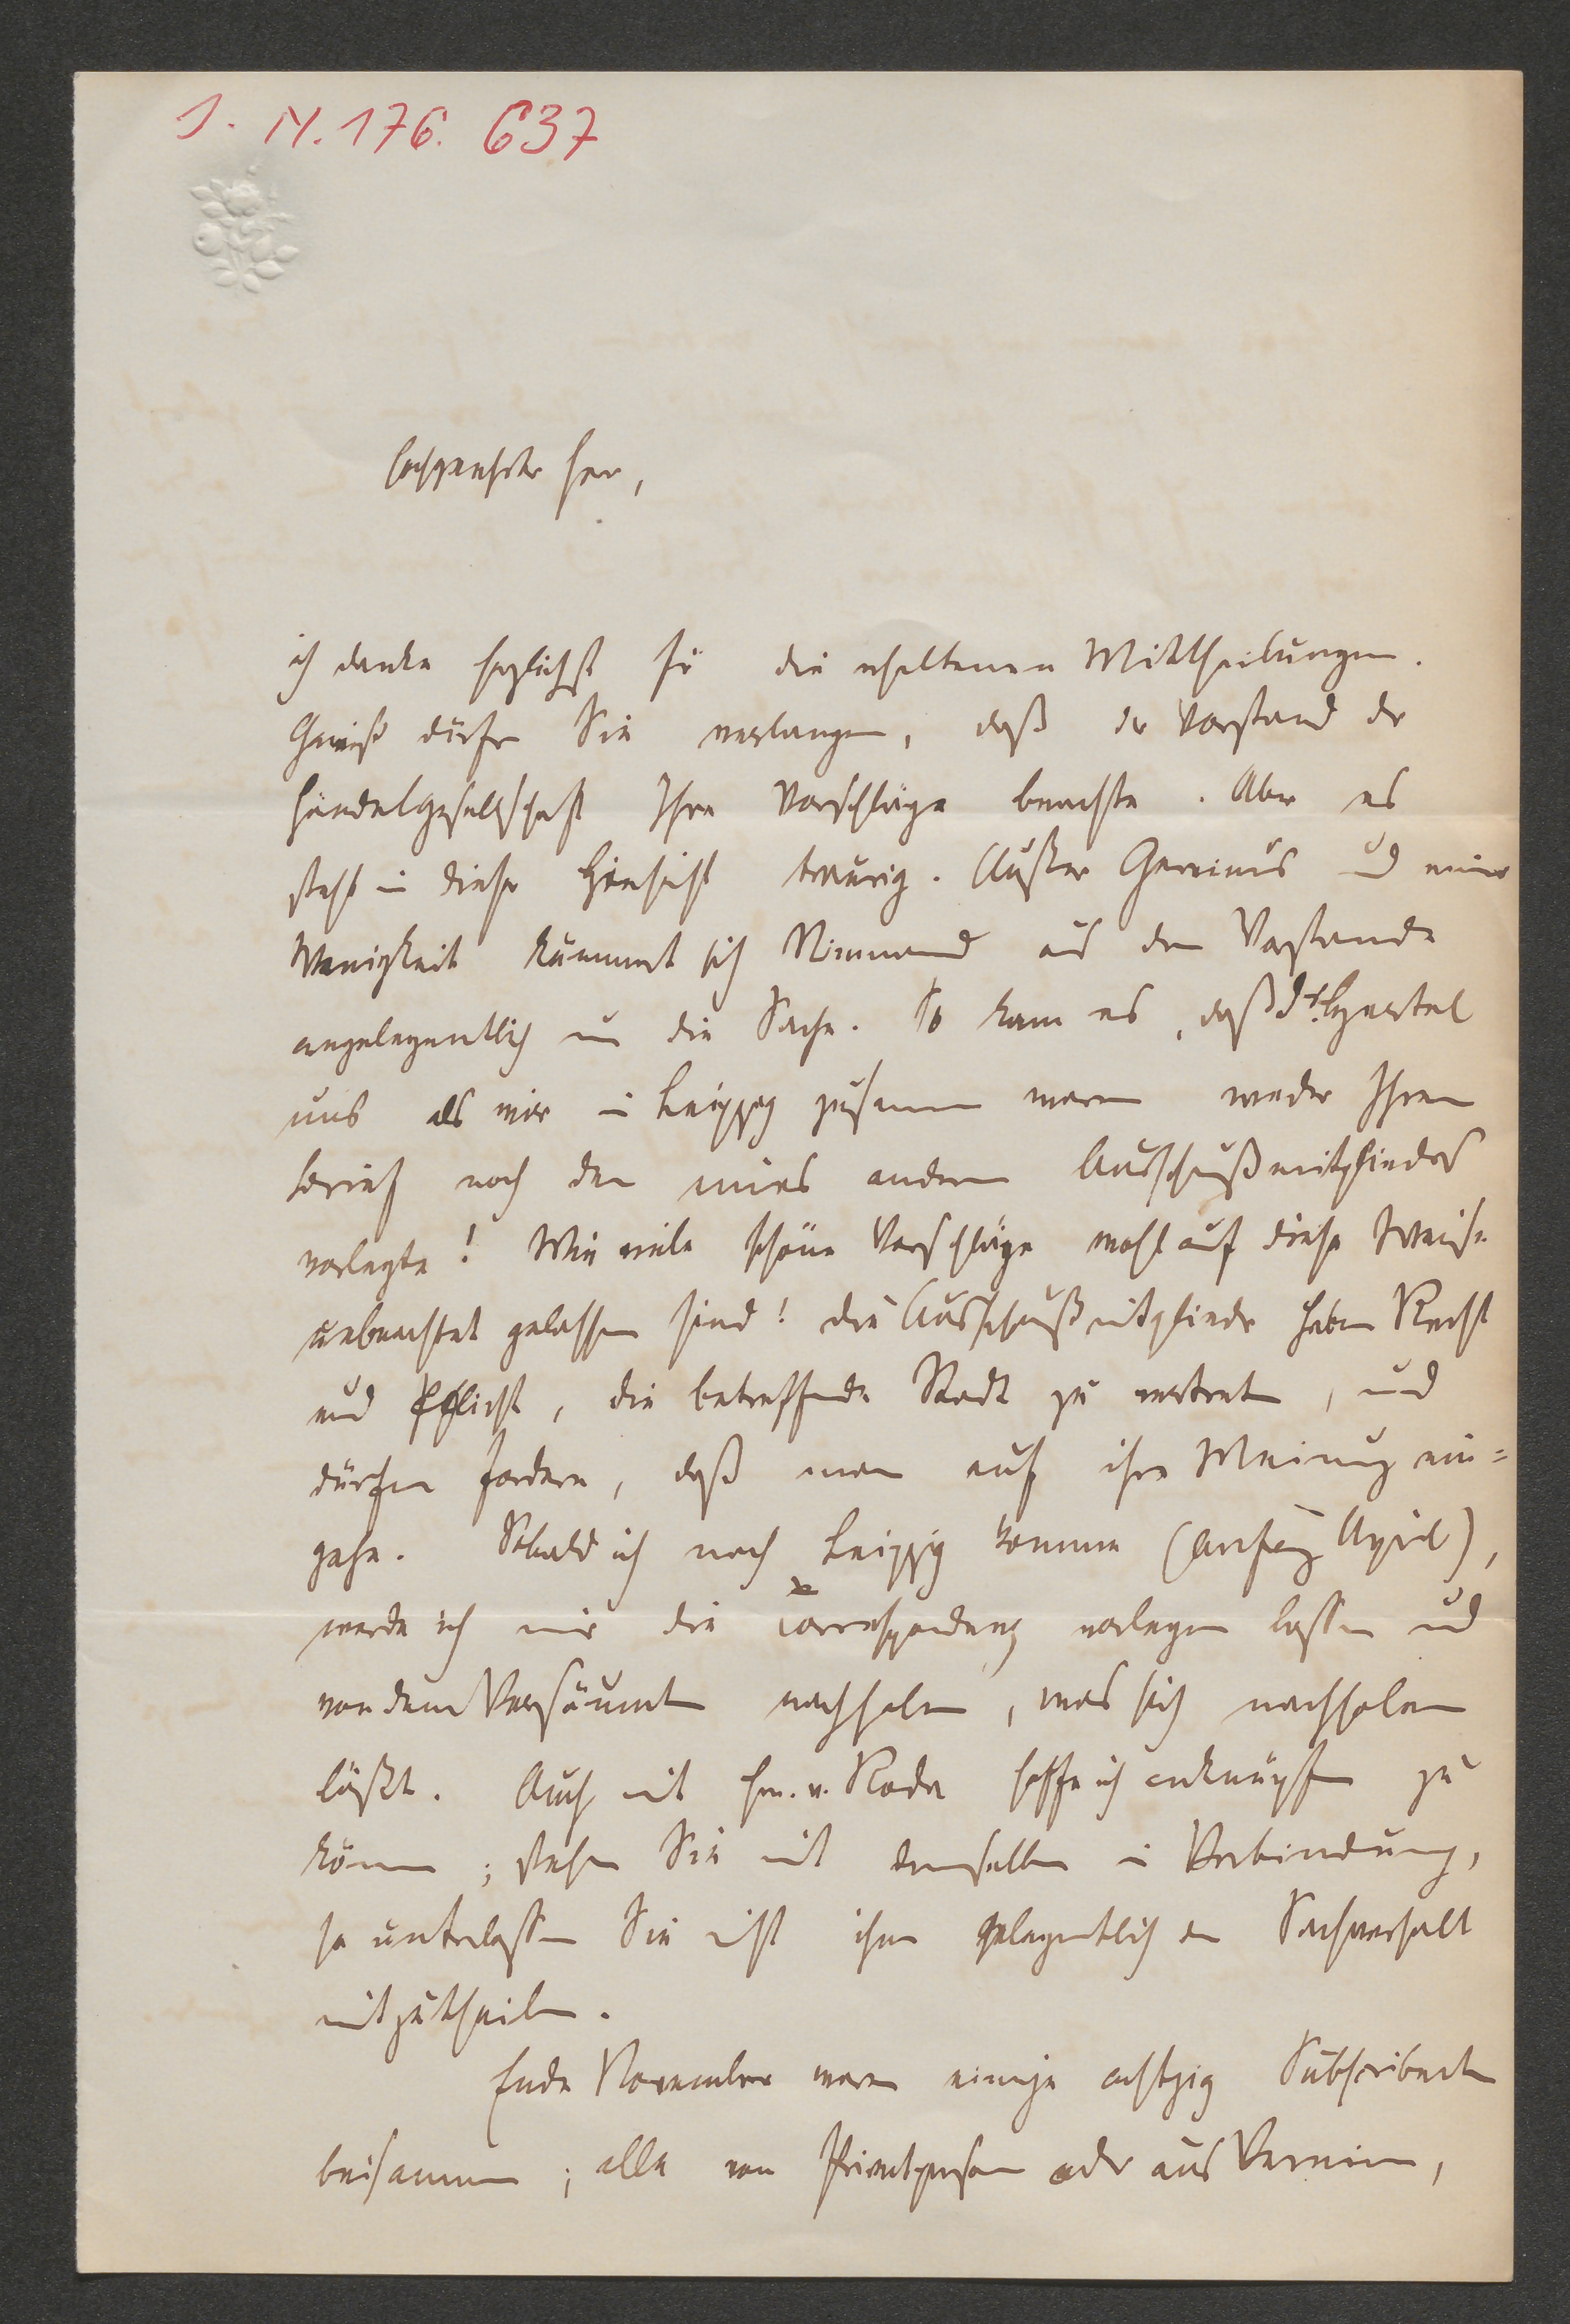 I. N. 176.637
Hochgeehrter Herr,
ich danke herzlichst für die erhaltenen Mittheilungen.
Gewiß dürfen Sie verlangen, daß der Vorstand der
Händelgesellschaft Ihre Vorschläge beachte. Aber es
steht in dieser Hinsicht traurig. Außer Gervinus und meiner
Wenigkeit kümmert sich Niemand aus dem Vorstande
angelegentlich um die Sache. So kam es, daß Dr. Haertel
uns als wir in Leipzig zusammen waren weder Ihren
Brief noch den eines anderen Ausschußmitgliedes
vorlegte! Wie viele schöne Vorschläge wohl auf diese Weise
unbeachtet gelassen sind! Die Ausschußmitglieder haben Recht
und Pflicht, die betreffende Stadt zu vertreten, und
dürfen fordern, daß man auf ihre Meinung ein=
gehe. Sobald ich nach Leipzig komme (Anfang April),
werde ich mir die Correspondenz vorlegen lassen und
von dem Versäumten nachholen, was sich nachholen
läßt. Auch mit Hrn. v. Roda hoffe ich anknüpfen zu
können; stehen Sie mit demselben in Verbindung,
so unterlassen Sie nicht ihm gelegentlich den Sachverhalt
mitzutheilen.
Ende November waren einige achtzig Subscribenten
beisammen; alle von Privatpersonen oder aus Vereinen,